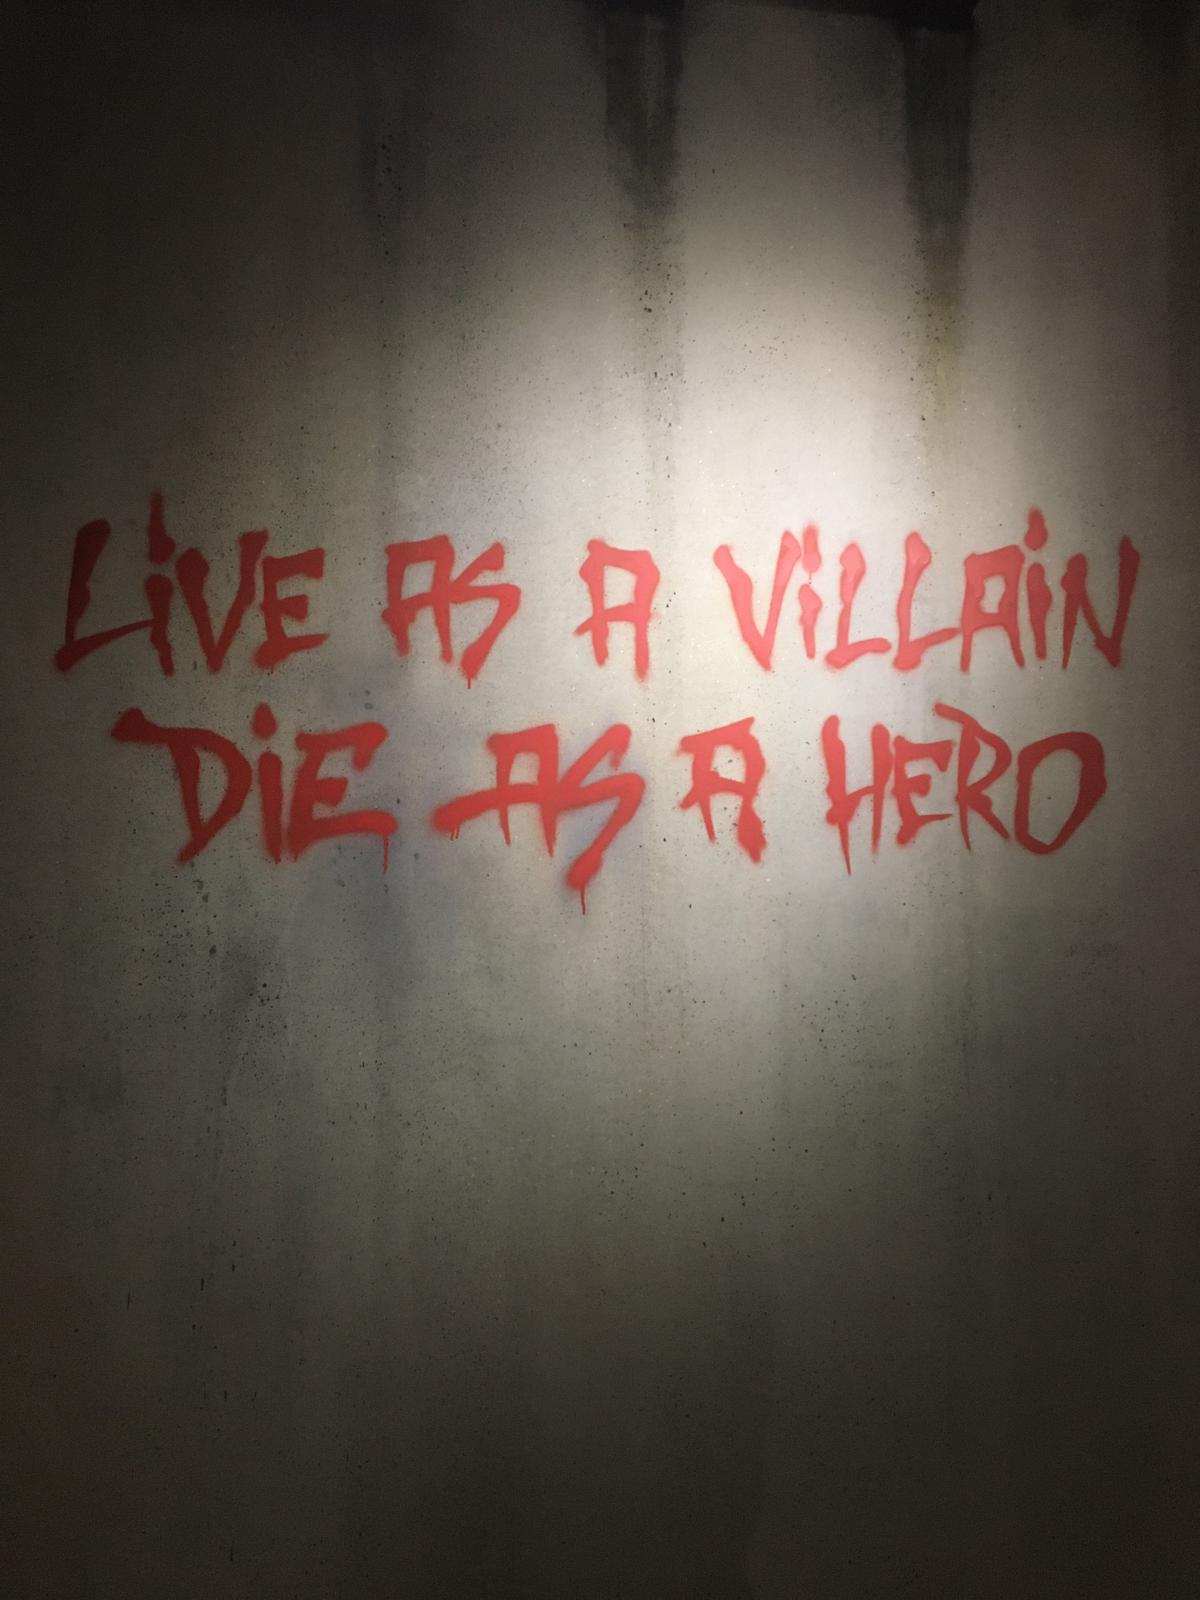 LiVE AS A ViLLAiN
DiE AS A HERO